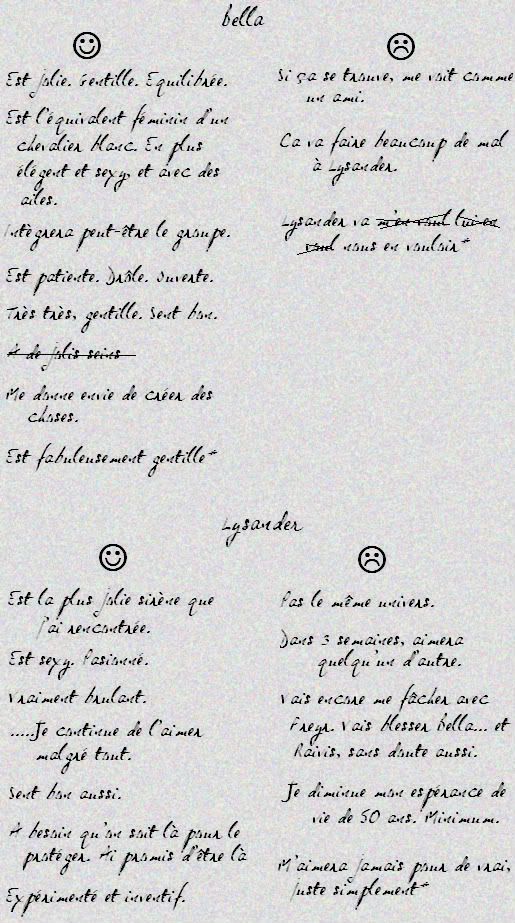 Bella
Est jolie. Gentille. Equilibrée.
Est l'équivalent féminin d'un
chevalier blanc. En plus
élégent et sexy, et avec des
ailes.
Intègrera peut-être le groupe.
Est patiente. Drôle. Ouverte.
Très très, gentille. Sent bon.
A de jolis seins
Me donne envie de créer des
choses.
Est fabuleusement gentille*
Si ça se trouve, me voit comme
un ami.
Ca va faire beaucoup de mal
à Lysander.
Lysander va m'en voul lui en
voul nous en vouloir*
Lysander
Est la plus jolie sirène que
j'ai rencontrée.
Est sexy. Pasionné.
Vraiment brulant.
.....Je continue de l'aimer
malgré tout.
Sent bon aussi.
A besoin qu'on soit là pour le
protéger. Ai promis d'être là
Expérimenté et inventif.
Pas le même univers.
Dans 3 semaines, aimera
quelqu'un d'autre.
Vais encore me fâcher avec
Freyr. Vais blesser Bella... et
Raivis, sans doute aussi.
Je diminue mon espérance de
vie de 50 ans. Minimum.
M'aimera jamais pour de vrai,
juste simplement*